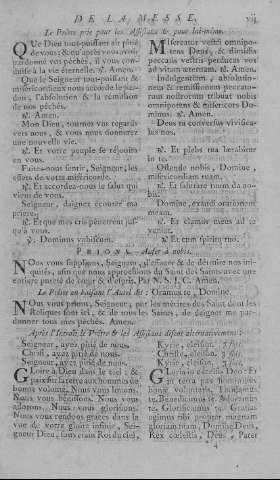 DE LA MESSE. vij
Le Prêtre prie pour les Assistans & pour lui-même.
QUe Dieu tout-puissant ait pitié
de vous; & qu'après vous avoir
pardonné vos péchés, il vous con-
duise à la vie éternelle. ℟. Amen.
Que le Seigneur tout-puissant &
miséricordieux nous accorde le par-
don, l'absolution & la rémission
de nos péchés.
℟. Amen.
Mon Dieu, tournez vos regards
vers nous, & vous nous donnerez
une nouvelle vie.
℟. Et votre peuple se réjouira
en vous.
Faites-nous sentir, Seigneur, les
effets de votre miséricorde.
℟. Et accordez-nous le salut qui
vient de vous.
Seigneur, daignez écouter ma
priere;
℟. Et que mes cris pénetrent jus-
qu'à vous.
℣. Dominus vobiscum.
MIsereatur vestrî omnipo-
tens Deus, & dimissis
peccatis vestris perducat vos
ad vitam æternam. ℟. Amen.
Indulgentiam, absolutio-
nem & remissionem pec-
catorum nostrorum tribuat nobis
omnipotens & misericors Do-
minus. ℟. Amen.
Deus tu conversus vivifica-
bis nos.
℟. Et plebs tua lætabitur
in te.
Ostende nobis, Domine,
misericordiam tuam.
℟. Et salutare tuum da no-
bis.
Domine, exaudi orationem
meam.
℟. Et clamor meus ad te
veniat.
℟. Et cum spiritu tuo.
PRIONS. Aufer à nobis.
NOus vous supplions, Seigneur, d'effacer & de détruire nos ini-
quités, afin que nous approchions du Saint des Saints avec une
entiere pureté de cœur & d'esprit. Par N. S. J. C. Amen.
Le Prêtre en baisant l'Autel dit: Oramus te, Domine.
NOus vous prions, Seigneur, par les mérites des Saints dont les
Reliques sont ici, & de tous les Saints, de daigner me pardonner
tous mes péchés. Amen.
Après l'Introït le Prêtre & les Assistans disent alternativement:
Seigneur, ayez pitié de nous.
Christ, ayez pitié de nous.
Seigneur, ayez pitié de nous.
GLoire à Dieu dans le ciel; &
paix sur la terre aux hommes de
bonne volonté. Nous vous louons.
Nous vous bénissons. Nous vous
adorons. Nous vous glorifions.
Nous vous rendons graces dans la
vue de votre gloire infinie, Seigneur
Dieu, souverain Roi du ciel,
Kyrie, eleison. 3 fois.
Christe, eleison. 3 fois.
Kyrie, eleison. 3 fois.
GLoria in excelsis Deo: Et
in terra pax hominibus
bonæ voluntatis. Laudamus
te. Benedicimus te. Adoramus
te. Glorificamus te. Gratias
agimus tibi propter magnam
gloriam tuam, Domine Deus,
Rex cœlestis, Deus, Pater
4